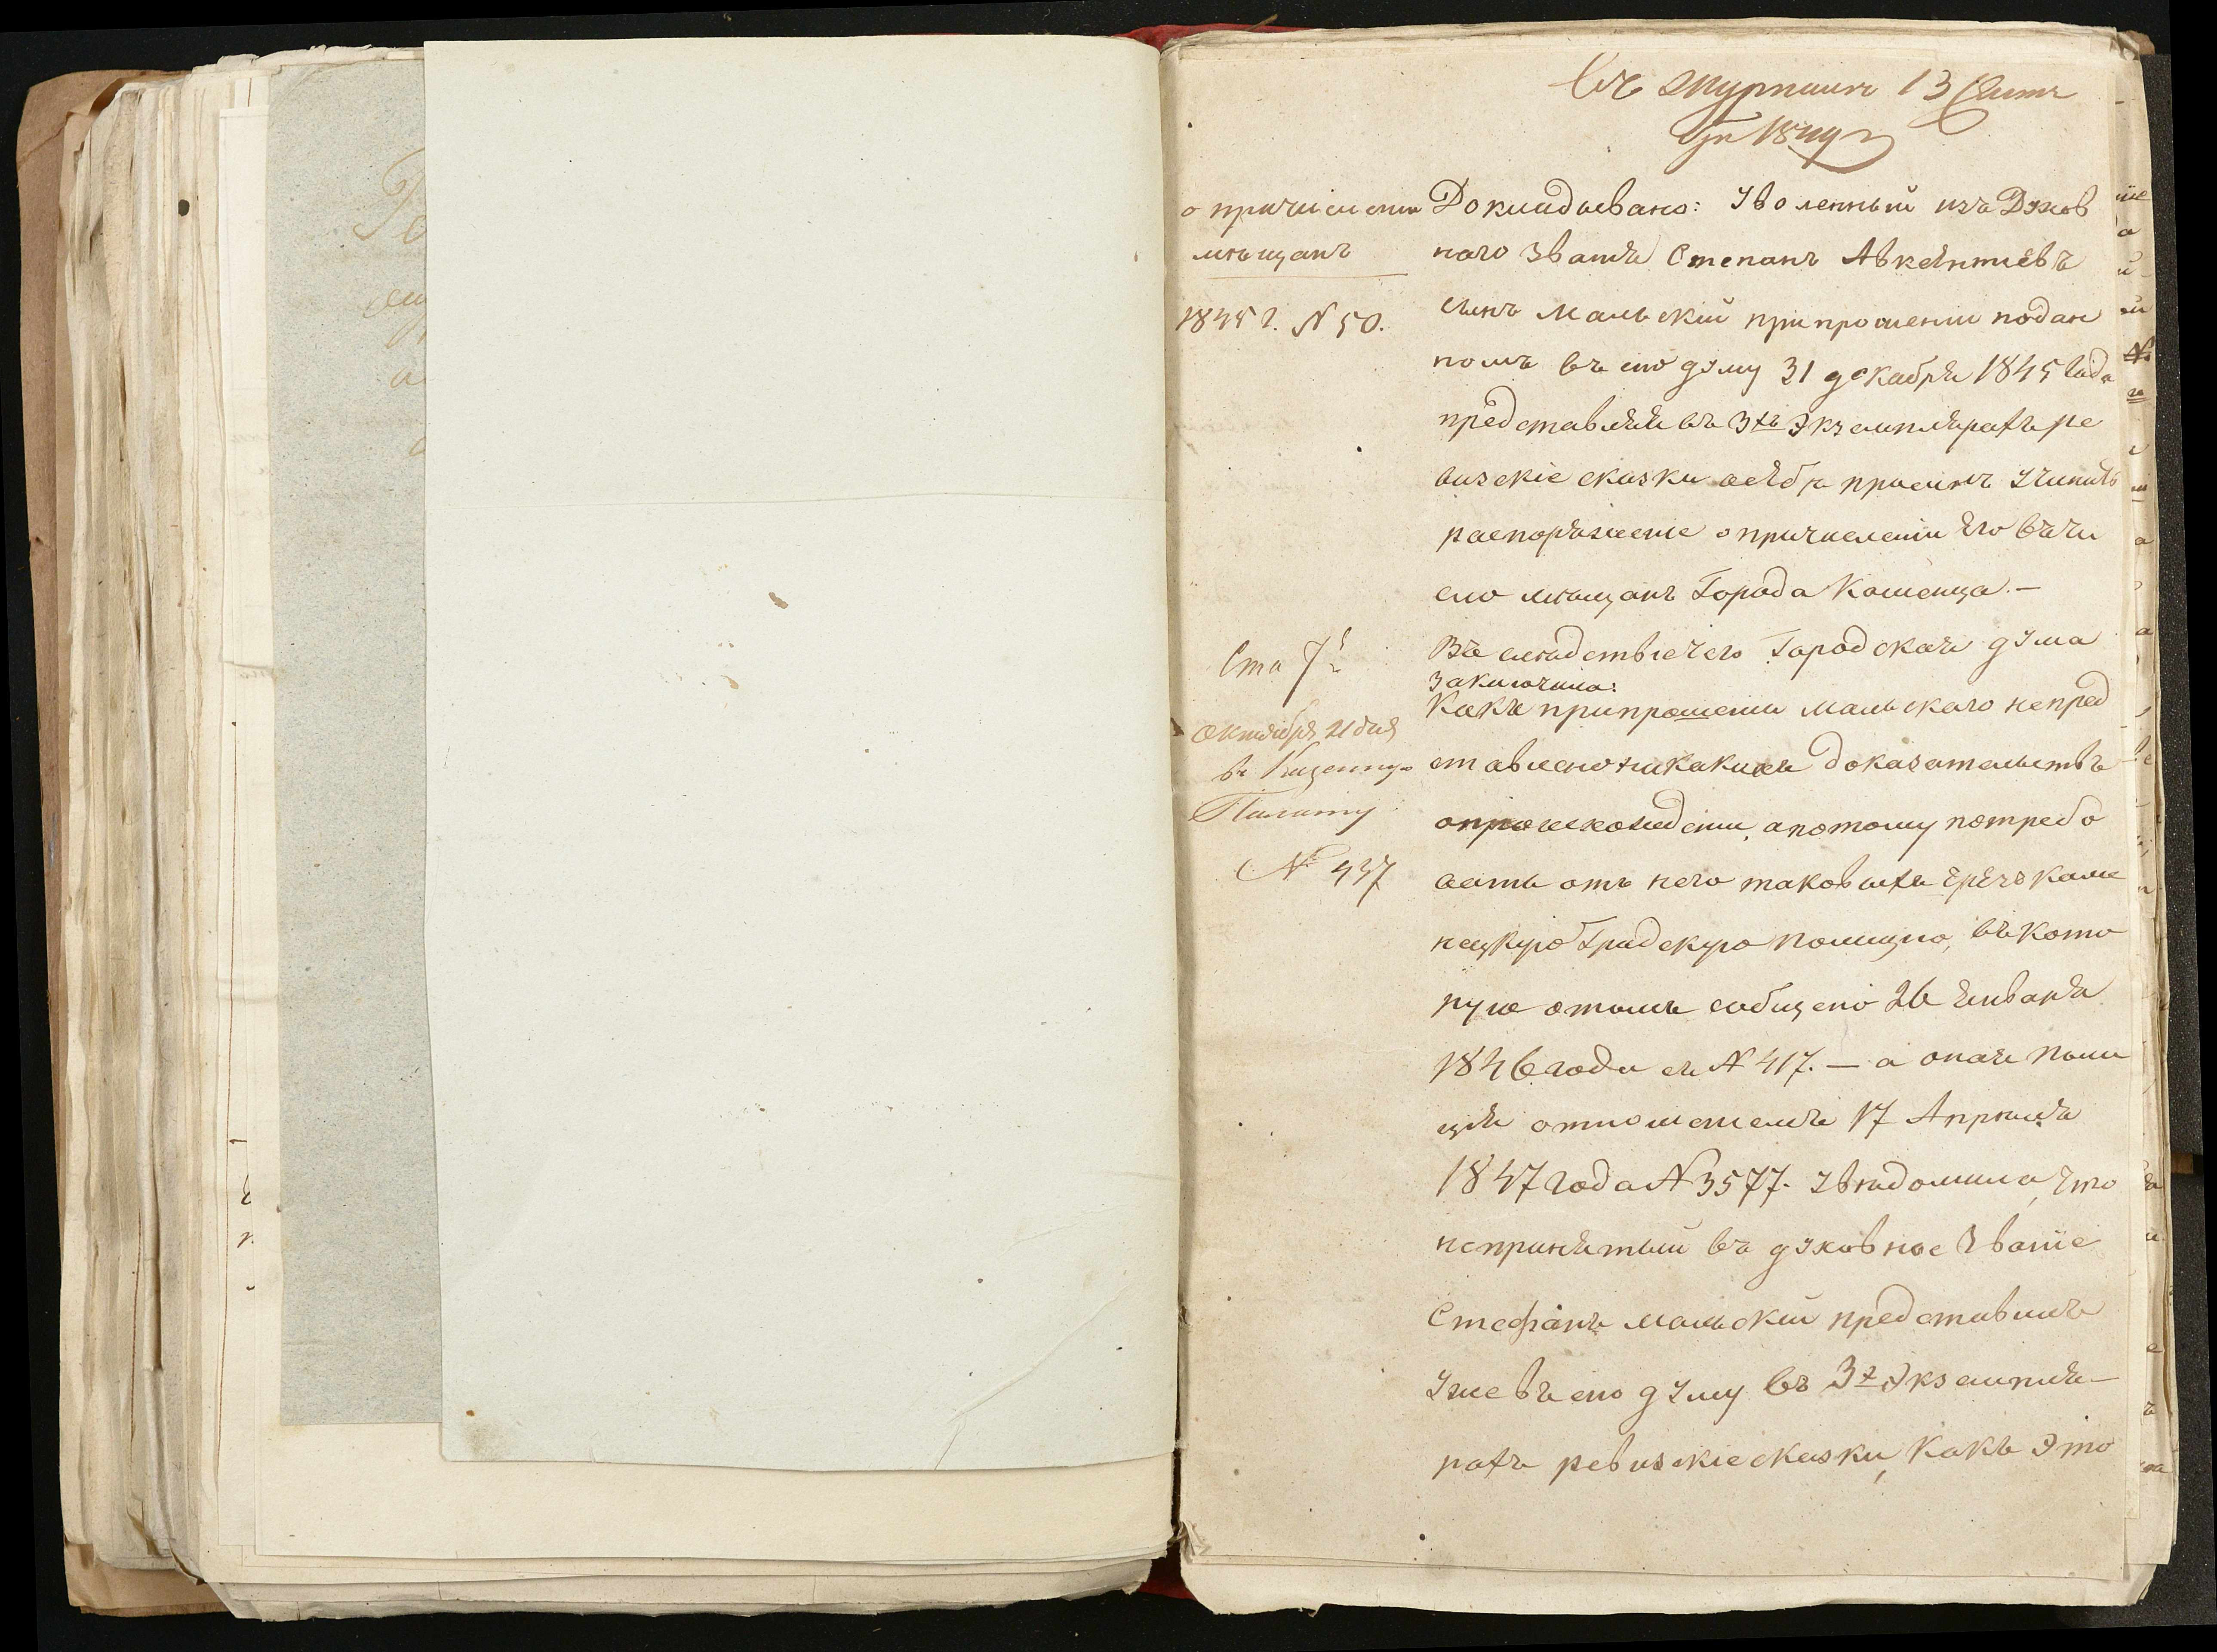 Въ журналъ 13 Сентя
бря 1849 г
о причислении
мѣщанъ
1845 г. N 50.
Докладывано: Уволенный изъ Духов
наго званія Степанъ Авкентіевъ
сынъ Мальскій при прошеніи подан
номъ въ сію думу 31 декабря 1845 года
представляя въ 3хъ Экземплярахъ ре
визскіе сказки о себѣ проситъ учинить
распоряженіе о причисленіи его въ чи
сло мѣщанъ Города Каменца.—
Въ слѣдствіе чего Городская дума
заключила:
Какъ при прошеніи Мальскаго не пред
ставлено никакихъ доказательствъ
о происхожденіи, а потому потребо
вать отъ него таковыхъ чрезъ Каме
нецкую Градскую полицію, въ кото
рую о томъ сообщено 26 января
1846 года за N 417.— а оная поли
ція отношеніемъ 17 Апрѣля
1847 года N 3577. увѣдомила, что
непринятый въ духовное званіе
Стефанъ Мальскій представилъ
уже въ сію думу въ 3х Экземпля-
рахъ ревизскіе сказки, какъ это
Ста 7я
Октября 21 дня
въ Казенную
Палату
№ 437